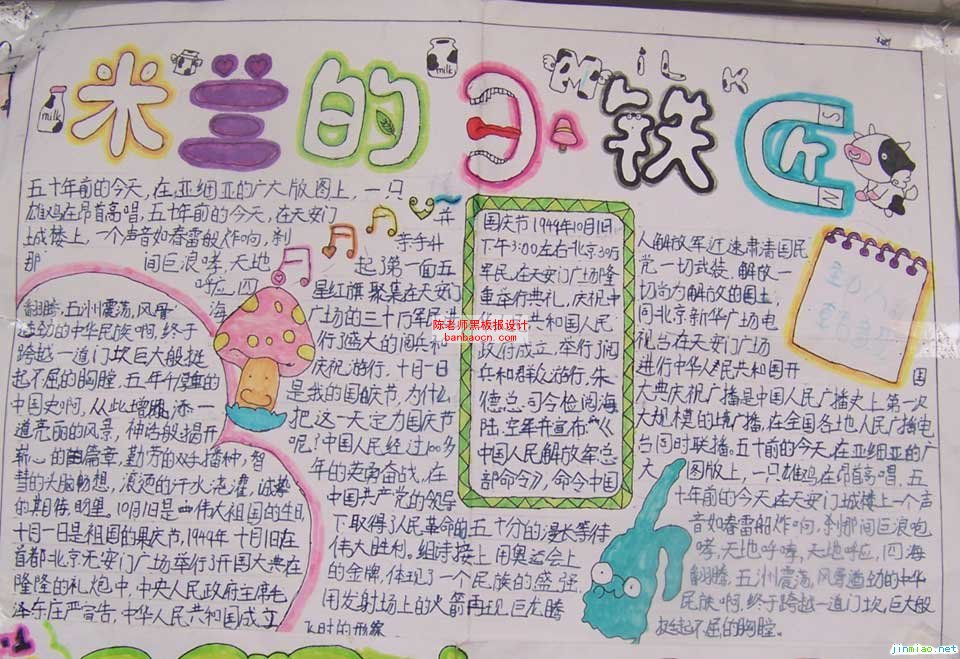 米兰的日铁匠
milk
milk
MiLK
S
N
五十年前的今天，在亚细亚的广大版图上，一只
雄鸡在昂首高唱，五十年前的今天，在天安门
城楼上，一个声音如春雷般炸响，刹
那
间巨浪哮，天地
呼应，四
海
翻腾，五洲震荡，风骨
遒劲的中华民族啊，终于
跨越一道门坎巨大般挺
起不屈的胸膛，五
中国史啊，从此增添一
道亮丽的风景，神话般揭开
崭心的篇章，勤劳的双手播种，智
慧的大脑畅想，滚烫的汗水浇灌，诚挚
的期待，明里。10月1日是伟大祖国的生日，
十月一日是祖国的果庆节，1949年十月1日在
首都北京天安门广场举行开国大典在
隆隆的礼炮中，中央人民政府主席毛
泽东庄严宣告，中华人民共和国成立
并
等手升
起了第一面五
星红旗，聚集在天安门
广场的三十万军民进
行了盛大的阅兵和
庆祝游行，十月一日
是我的国庆节，为什么
把这一天定为国庆节
呢？中国人民经过100多
年的英勇奋战，在
中国共产党的领导
下，取得了人民革命的
伟大胜利。
五十分的漫长等待
上用奥运会上
的金牌，体现了一个民族的盛强
用发射场上的火箭再现巨龙腾
飞时的形象
国庆节1949年10月1日，
下午3:00左右北京30万
军民，在天安门广场隆
重举行典礼，庆祝中
共和国人民
政府成立，举行了阅
兵和群众游行，朱
德总司令检阅海
陆，空军并宣布“《
中国人民解放军总
部命令》，命令中国
人解放军迅速肃清国民
党一切武装，解放一
切尚力解放的国土，
同北京新华广场电
视台在天安门广场
进行中华人民共和国开
国
大典庆祝广播是中国人民广播史上第一次
大规模的境广播，在全国各地人民广播电
台同时联播。五十前的今天，在亚细亚的广
大
图版上，一只雄鸡在昂首高唱，五
十年前的今天在天安门城楼上一个声
音如春雷般炸响，刹那间巨浪咆
哮，天地呼哮，天地呼应，四海
翻腾，五洲震荡，风骨遒劲的中华
民族啊，终于跨越一道门坎，巨大般
挺起不屈的胸膛。
陈老师黑板报设计
banbaocn.com
jinmiao.net